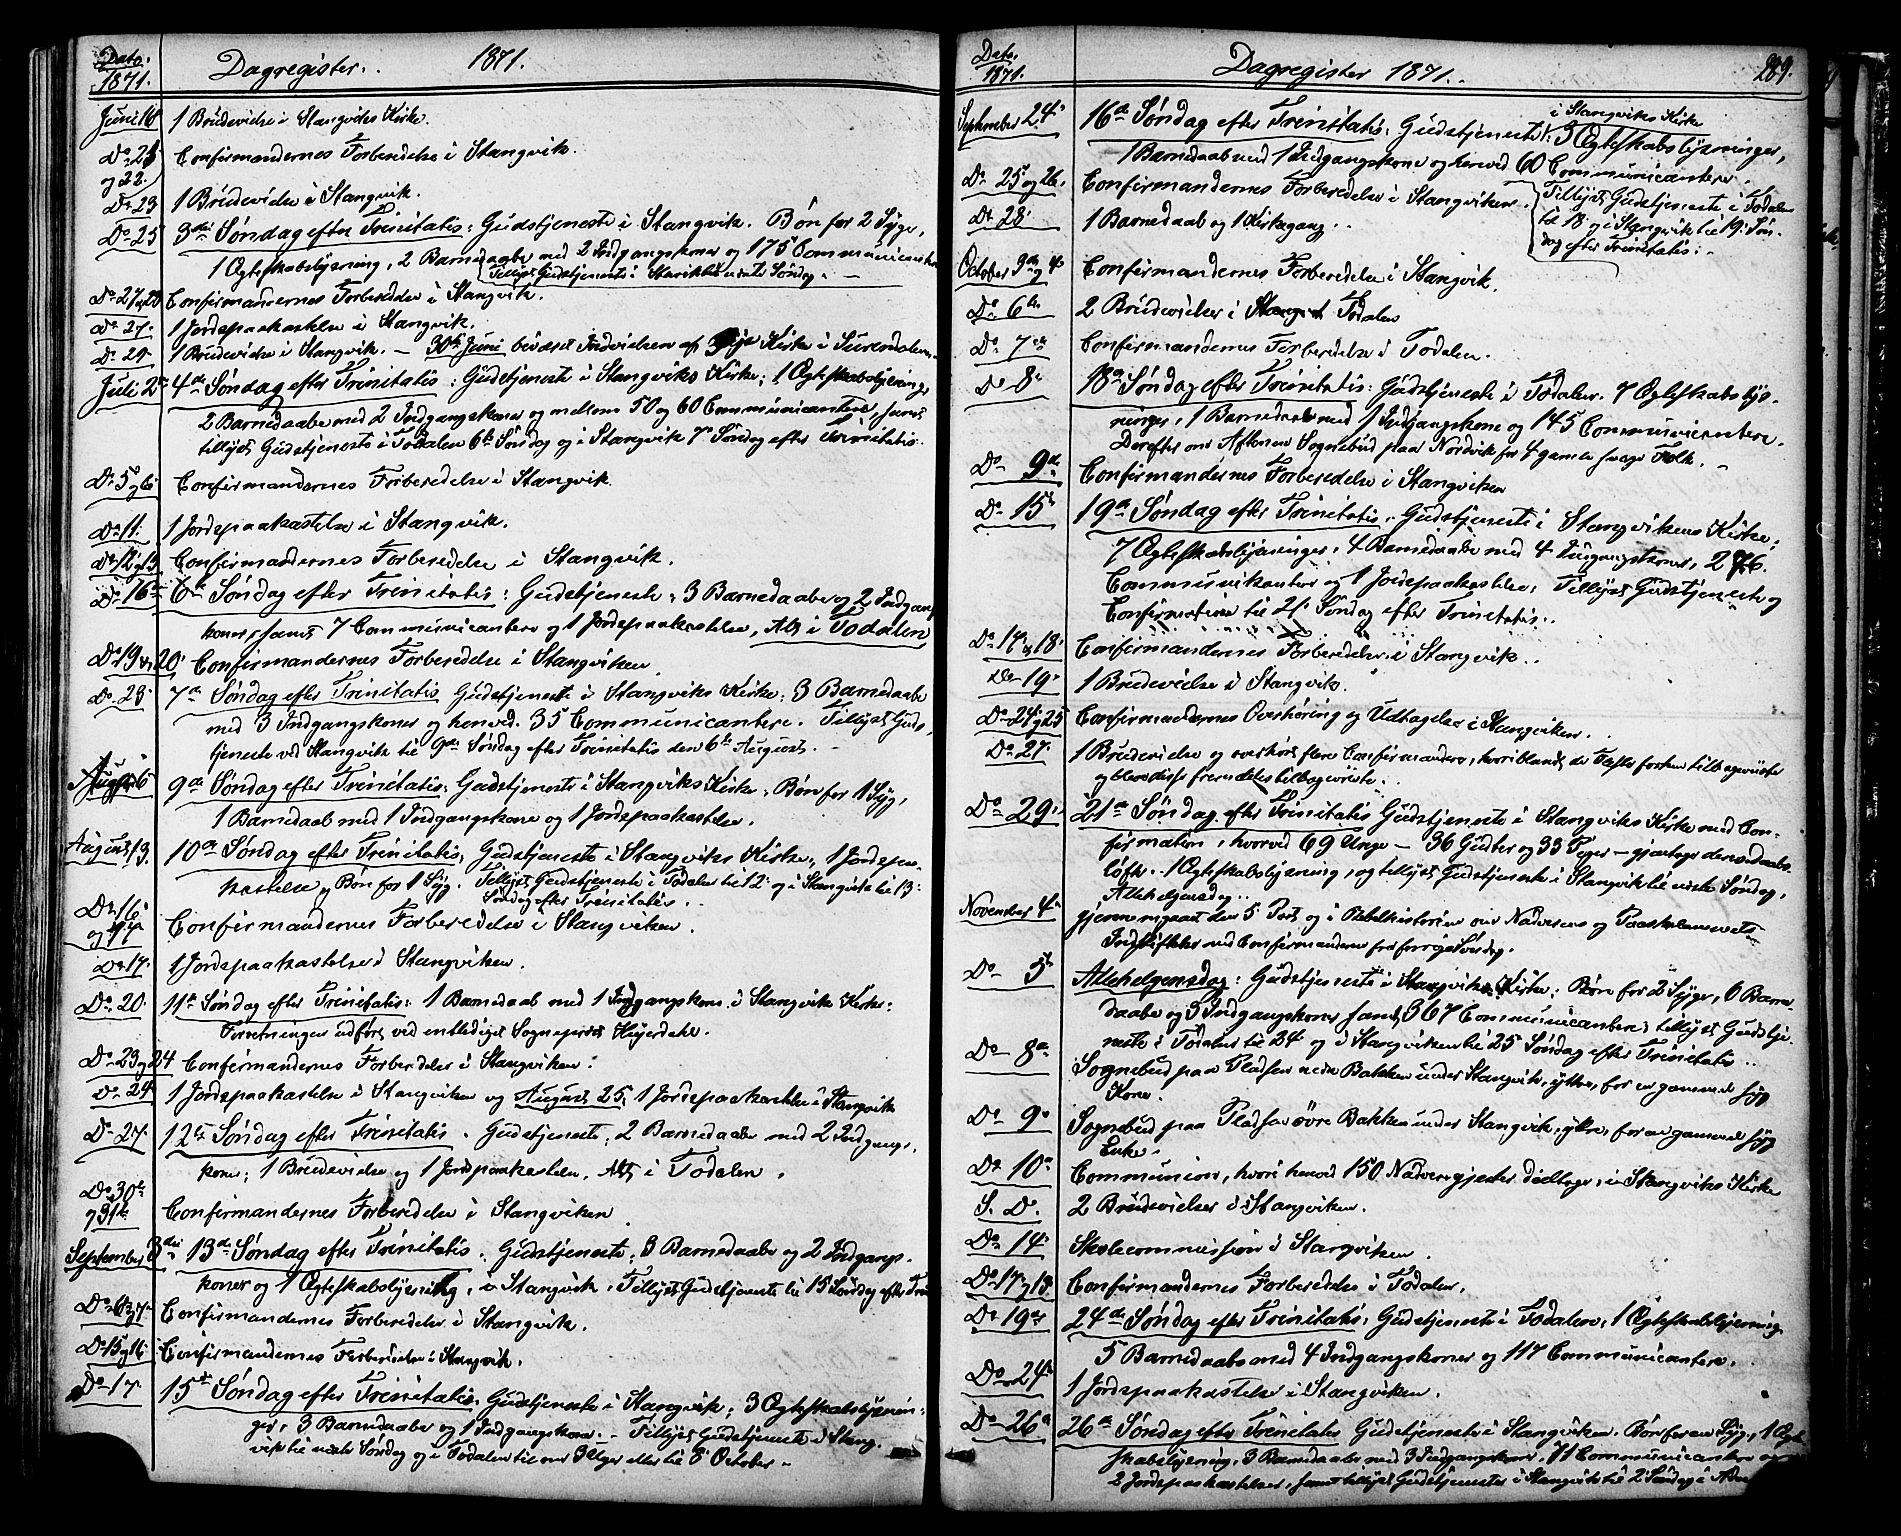 Dato. 1871. Dagregister. 1871.
Juni 16 1 Brudevielse i Stangviks Kirke.
Do 21 Confirmandernes Forberedelse i Stangvik.
og 22.
Do 23 1 Brudevielse i Stangvik.
Do 25 3die Søndag efter Trinitatis: Gudstjeneste i Stangvik. Bøn for 2 Syge,
1 Ægteskabslysning, 2 Barnedaabe med 2 Indgangskoner og 175 Communicanter
Tillyst Gudstjeneste i Søndag.
Do 27 28 Confirmandernes Forberedelse i Stangvik.
Do 27. 1 Jordspaakastelse i Stangvik.
Do 29. 1 Brudevielse i Stangvik. — 30te Juni Indvielsen af Kirke i Surendalen.
Juli 2den 4de Søndag efter Trinitatis: Gudstjeneste i Stangviks Kirke; 1 Ægteskabslysning
2 Barnedaabe med 2 Indgangskoner og mellem 50 og 60 Communicantere, samt
tillyst Gudstjeneste i Todalen 6te Søndag og i Stangvik 7de Søndag efter Trinitatis.
Do 5 og 6 Confirmandernes Forberedelse i Stangvik.
Do 11. 1 Jordspaakastelse i Stangvik.
Do 12 og 13 Confirmandernes Forberedelse i Stangvik.
Do 16 6te Søndag efter Trinitatis: Gudstjeneste; 3 Barnedaabe og 2 Indgangs
koner, samt 7 Communicantere og 1 Jordspaakastelse, Alt i Todalen
Do 19 og 20. Confirmandernes Forberedelse i Stangviken.
Do 23. 7de Søndag efter Trinitatis Gudstjeneste i Stangviks Kirke; 3 Barnedaabe
med 3 Indgangskoner og henved 35 Communicantere. Tillyst Guds,
tjeneste ved Stangvik til 9de Søndag efter Trinitatis den 6te August. —
August 6 9de Søndag efter Trinitatis; Gudstjeneste i Stangviks Kirke; Bøn for 1 Syg,
1 Barnedaab med 1 Indgangskone og 1 Jordspaakastelse.
August 13. 10de Søndag efter Trinitatis, Gudstjeneste i Stangviks Kirke; 1 Jordspaa-
kastelse og Bøn for 1 Syg. Tillyst Gudstjeneste i Todalen til 12. og i Stangvik til 13.
Søndag efter Trinitatis.
Do 16 og 17 Confirmandernes Forberedelse i Stangviken.
Do 17. 1 Jordspaakastelse i Stangviken.
Do 20. 11te Søndag efter Trinitatis: 1 Barnedaab med 1 Indgangskone i Stangvik Kirke:
Forretningen udført ved entlediget Sognepræst Høyerdahl.
Do 23 og 24 Confirmandernes Forberedelse i Stangviken.
Do 24 1 Jordspaakastelse i Stangviken og August 25. 1 Jordspaakastelse i Stangvik
Do 27. 12te Søndag efter Trinitatis. Gudstjeneste; 2 Barnedaabe med 2 Indgangs,
koner; 1 Brudevielse og 1 Jordspaakastelse, Alt i Todalen.
Do 30te og 31te Confirmandernes Forberedelse i Stangviken.
September 3die 13de Søndag efter Trinitatis. Gudstjeneste; 3 Barnedaabe og 2 Indgangs-
koner og 1 Ægteskabslysning, i Stangvik. Tillyst Gudstjeneste til 15 Søndag efter Tri
Do 6 og 7. Confirmandernes Forberedelse i Stangvik.
Do 15 og 16. Confirmandernes Forberedelse i Stangvik.
Do 17. 15de Søndag efter Trinitatis. Gudstjeneste i Stangvik; 3 Ægteskabslysnin-
ger, 3 Barnedaabe og 1 Indgangskone. — Tillyst Gudstjeneste i Stang-
vik til næste Søndag og i Todalen til om 3 Uger eller til 8. October. —
Dato. 1871. Dagregister 1871. 289.
September 24. 16de Søndag efter Trinitatis. Gudstjeneste i Stangviks Kirke; 3 Ægteskabslysninger,
1 Barnedaab med 1 Indgangskone og henved 60 Communicantere.
Do 25 og 26. Confirmandernes Forberedelse i Stangviken.
Tillyst Gudstjeneste i Todalen
til 18 og i Stangvik til 19. Søn-
dag efter Trinitatis.
Do 28. 1 Barnedaab og 1 Kirkegang.
October 3die og 4. Confirmandernes Forberedelse i Stangvik.
Do 6te 2 Brudevielser i Todalen
Do 7de Confirmandernes Forberedelse i Todalen.
Do 8. 18de Søndag efter Trinitatis: Gudstjeneste i Todalen. 7 Ægteskabslys-
ninger, 1 Barnedaab med 1 Indgangskone og 145 Communicantere.
Derefter om Aftenen Sognebud paa Nordvik for 4 gamle svage Folk. —
Do 9de Confirmandernes Forberedelse i Stangviken
Do 15de 19de Søndag efter Trinitatis. Gudstjeneste i Stangvikens Kirke;
7 Ægteskabslysninger; 4 Barnedaabe med 4 Indgangskoner, 276.
Communikanter og 1 Jordspaakastelse; Tillyst Gudstjeneste og
Confirmation til 21. Søndag efter Trinitatis.
Do 17 og 18. Confirmandernes Forberedelse i Stangvik.
Do 19. 1 Brudevielse i Stangvik.
Do 24 og 25 Confirmandernes Overhøring og Udtagelse i Stangviken.
Do 27. 1 Brudevielse og overhørt flere Confirmander, hvoriblandt de Fleste forhen tilbageviste
og disse fremdeles tilbageviste.
Do 29. 21de Søndag efter Trinitatis Gudstjeneste i Stangviks Kirke med Con-
firmation, hvorved 69 Unge — 36 Gutter og 33 Piger — gjentoge deres Daabs-
løfte. 1 Ægteskabslysning, og tillyst Gudstjeneste i Stangvik til næste Søndag,
Allehelgensdag.
November 4de gjennemgaaet den 5 Part og i Bibelhistorien om Nadverens og Paaskelammets
Indstiftelse med Confirmanderne fra forrige Søndag.
Do 5te Allehelgensdag: Gudstjeneste i Stangviks Kirke; Bøn for 2 Syge, 6 Barne-
daabe og 5 Indgangskoner samt 367 Communicantere; tillyst Gudstje-
neste i Todalen til 24 og i Stangviken til 25 Søndag efter Trinitatis.
Do 8de Sognebud paa Pladsen nedre Bakken under Stangvik, ytre, for en gammel syg
Kone.
Do 9de Sognebud paa Pladsen øvre Bakken under Stangvik, ytre, for en gammel syg
Enke.
Do 10de Communion, hvori henved 150 Nadvergjæster deeltoge, i Stangviks Kirke
S. D. 2 Brudevielser i Stangviken.
Do 14. Skolecommission i Stangviken.
Do 17 og 18. Confirmandernes Forberedelse i Todalen.
Do 19de 24de Søndag efter Trinitatis: Gudstjeneste i Todalen; 1 Ægteskabslysning
5 Barnedaabe med 4 Indgangskoner og 117 Communicantere.
Do 24. 1 Jordspaakastelse i Stangviken.
Do 26de 26de Søndag efter Trinitatis Gudstjeneste i Stangviken. Bøn for en Syg, 1 Ægte
skabslysning, 3 Barnedaabe med 3 Indgangskoner, 71 Communicantere og
2 Jordspaakastelser, samt tillyst Gudstjeneste i Stangvik til 2 Søndag i